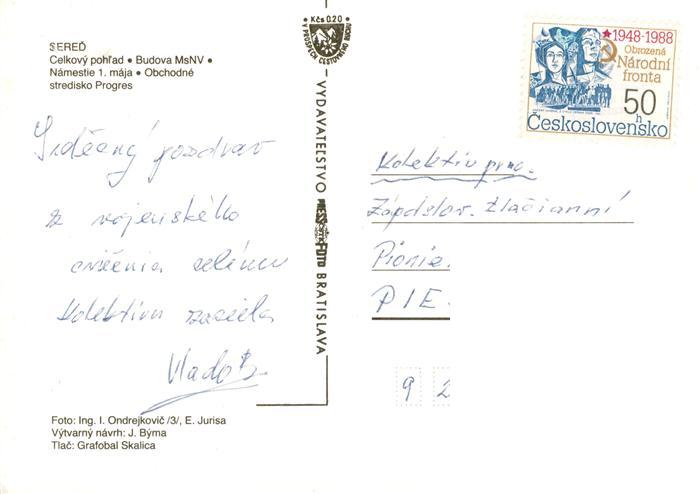 SEREĎ
Celkový pohľad • Budova MsNV •
Námestie 1. mája • Obchodné
stredisko Progres
Srdečný pozdrav
z vojenského
cvičenia celému
kolektívu zasiela
Vlado B.
Foto: Ing. I. Ondrejkovič /3/, E. Jurisa
Výtvarný návrh: J. Býma
Tlač: Grafobal Skalica
Kčs 0.20
V PROSPECH CESTOVNÉHO RUCHU
VYDAVATEĽSTVO PRESSFOTO BRATISLAVA
★1948-1988
Obrozená
Národní
fronta
50 h
Československo
Kolektív prac.
Západslov. tlačiarní
PIE
9 2